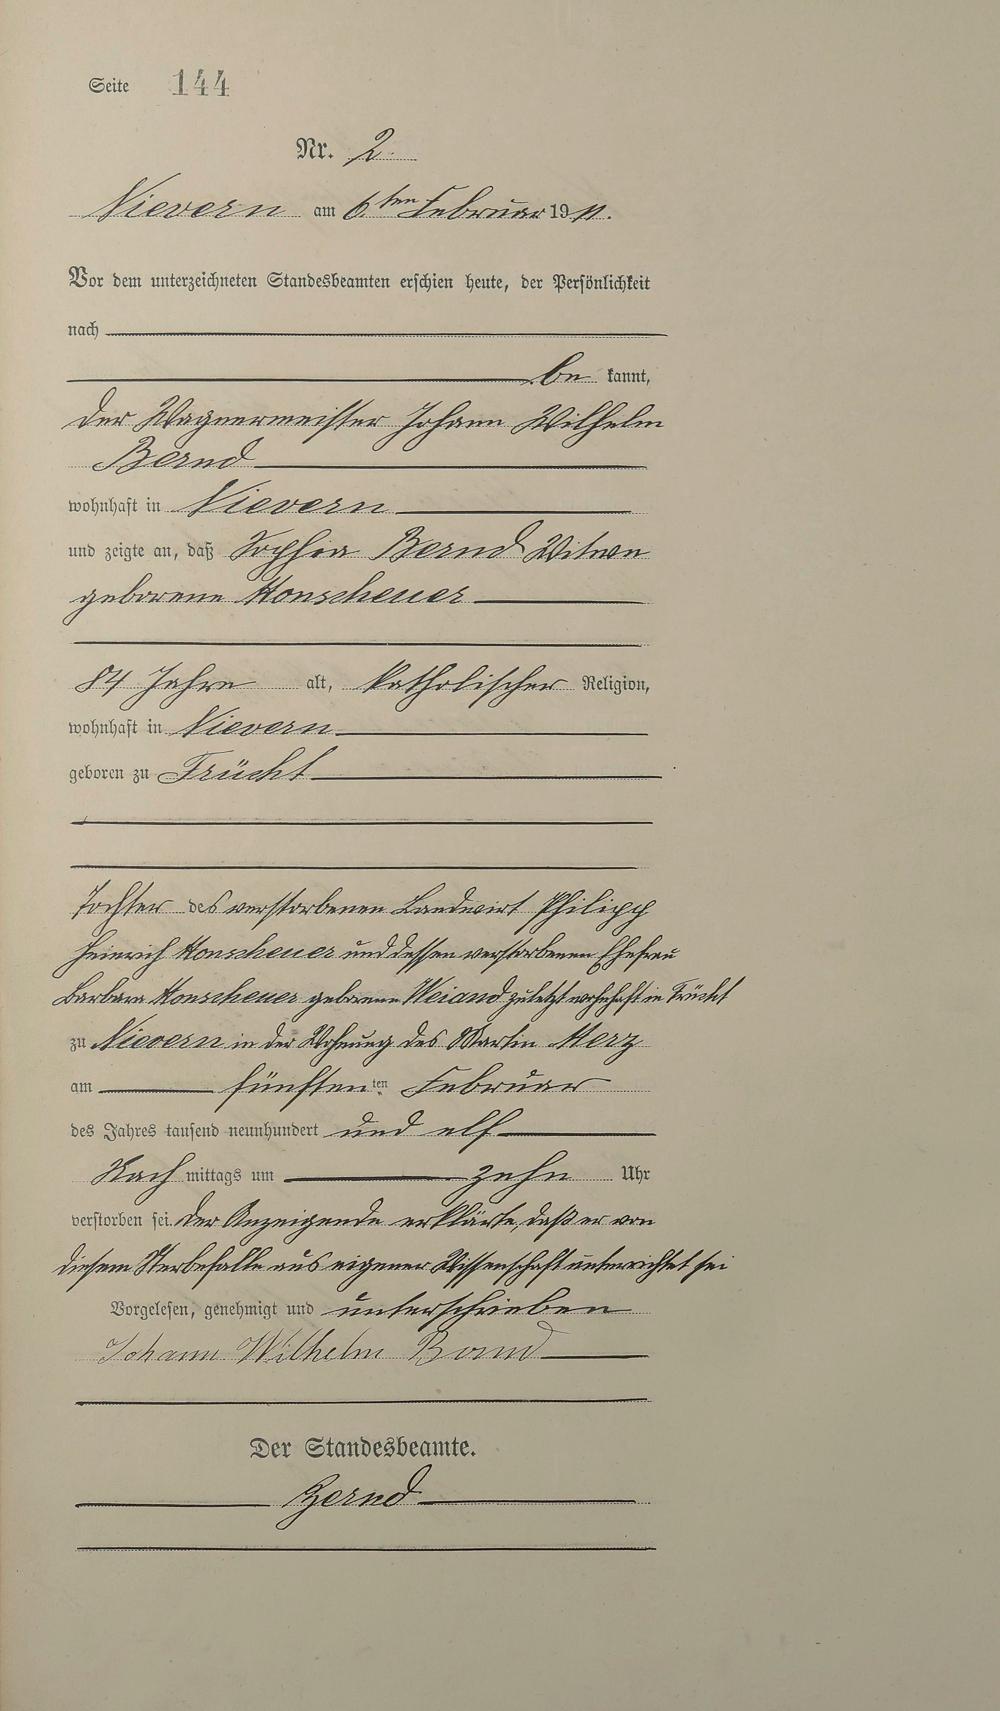 Seite 144
Nr. 2.
Nievern am 6.ten Februar 1911.
Vor dem unterzeichneten Standesbeamten erschien heute, der Persönlichkeit
nach
be kannt,
der Wagnermeister Johann Wilhelm
Bernd
wohnhaft in Nievern
und zeigte an, daß Sophia Bernd Witwe
geborene Honscheuer
84 Jahre alt, katholischer Religion,
wohnhaft in Nievern
geboren zu Frücht
Tochter des verstorbenen Landwirt Philipp
Heinrich Honscheuer und dessen verstorbenen Ehefrau
Barbara Honscheuer geborene Weiand zuletzt wohnhaft in Frücht
zu Nievern in der Wohnung des Martin Merz
am fünften ten Februar
des Jahres tausend neunhundert und elf
Nach mittags um zehn Uhr
verstorben sei. Der Anzeigende erklärte, daß er von
diesem Sterbefalle aus eigener Wissenschaft unterrichtet sei
Vorgelesen, genehmigt und unterschrieben
Johann Wilhelm Bernd
Der Standesbeamte.